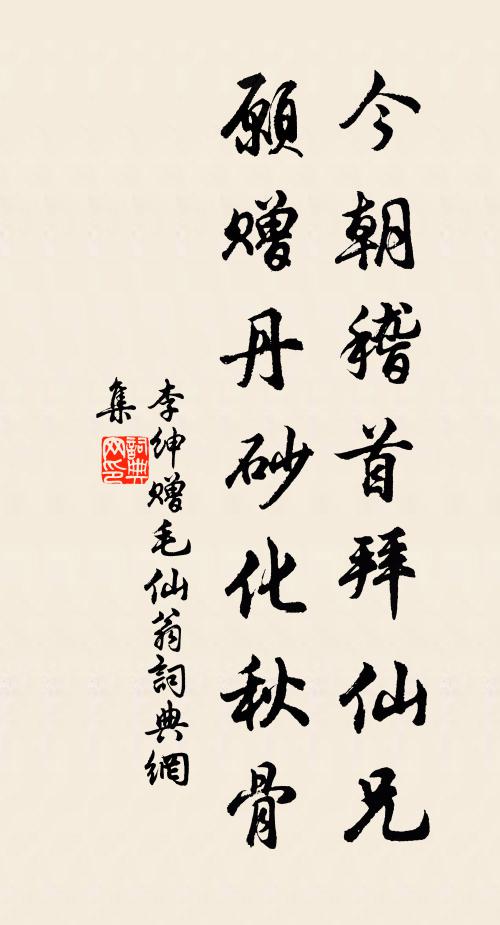 今朝稽首拜仙兄
願赠丹砂化秋骨
李绅赠毛仙翁詞典網
集
詞典网印